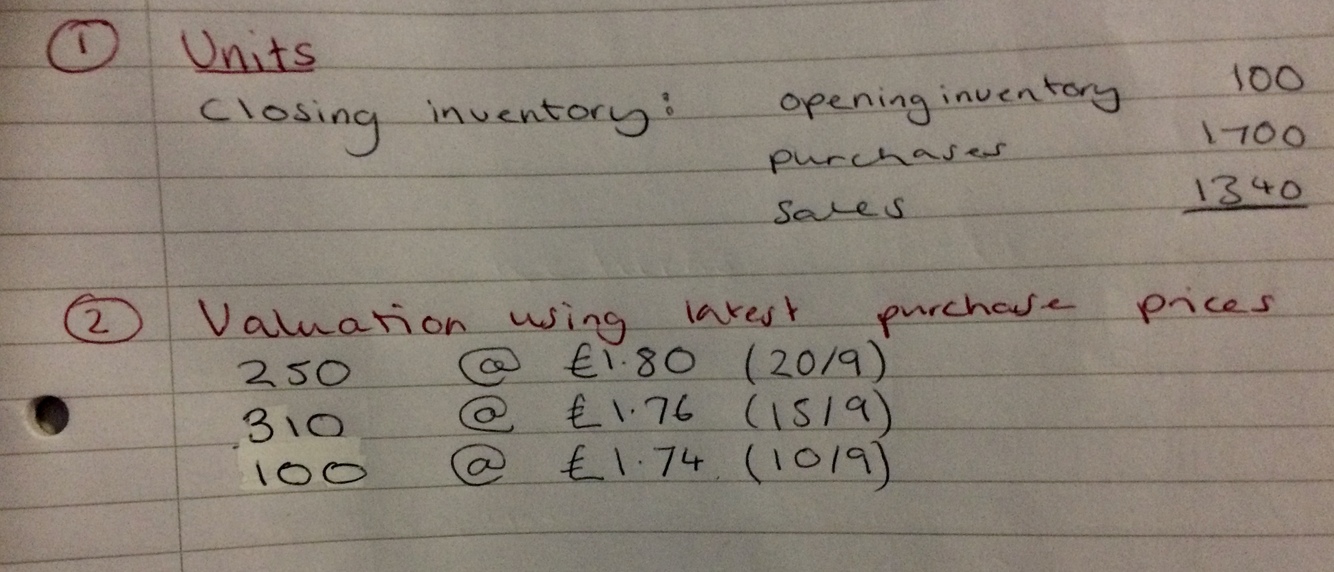 ① Units
Closing inventory: opening inventory 100
purchases 1700
sales 1340
② Valuation using latest purchase prices
250 @ £1.80 (20/9)
310 @ £1.76 (15/9)
100 @ £1.74 (10/9)